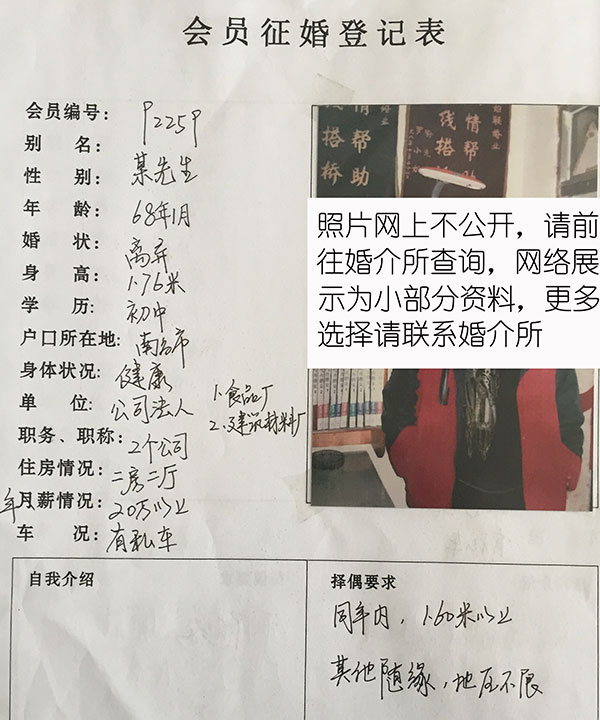 会员征婚登记表
会员编号: P225P
别 名: 某先生
性 别:
年 龄: 68年1月
婚 状: 离异
身 高: 1.76米
学 历: 初中
户口所在地: 南昌市
身体状况: 健康
单 位: 公司法人 1.食品厂
2.建筑材料厂
职务、职称: 2个公司
住房情况: 二房二厅
年月薪情况: 20万以上
车 况: 有私车
情帮助
线搭桥
情帮助
线搭
照片网上不公开，请前
往婚介所查询，网络展
示为小部分资料，更多
选择请联系婚介所
自我介绍
择偶要求
同年内，1.60米以上
其他随缘，地区不限